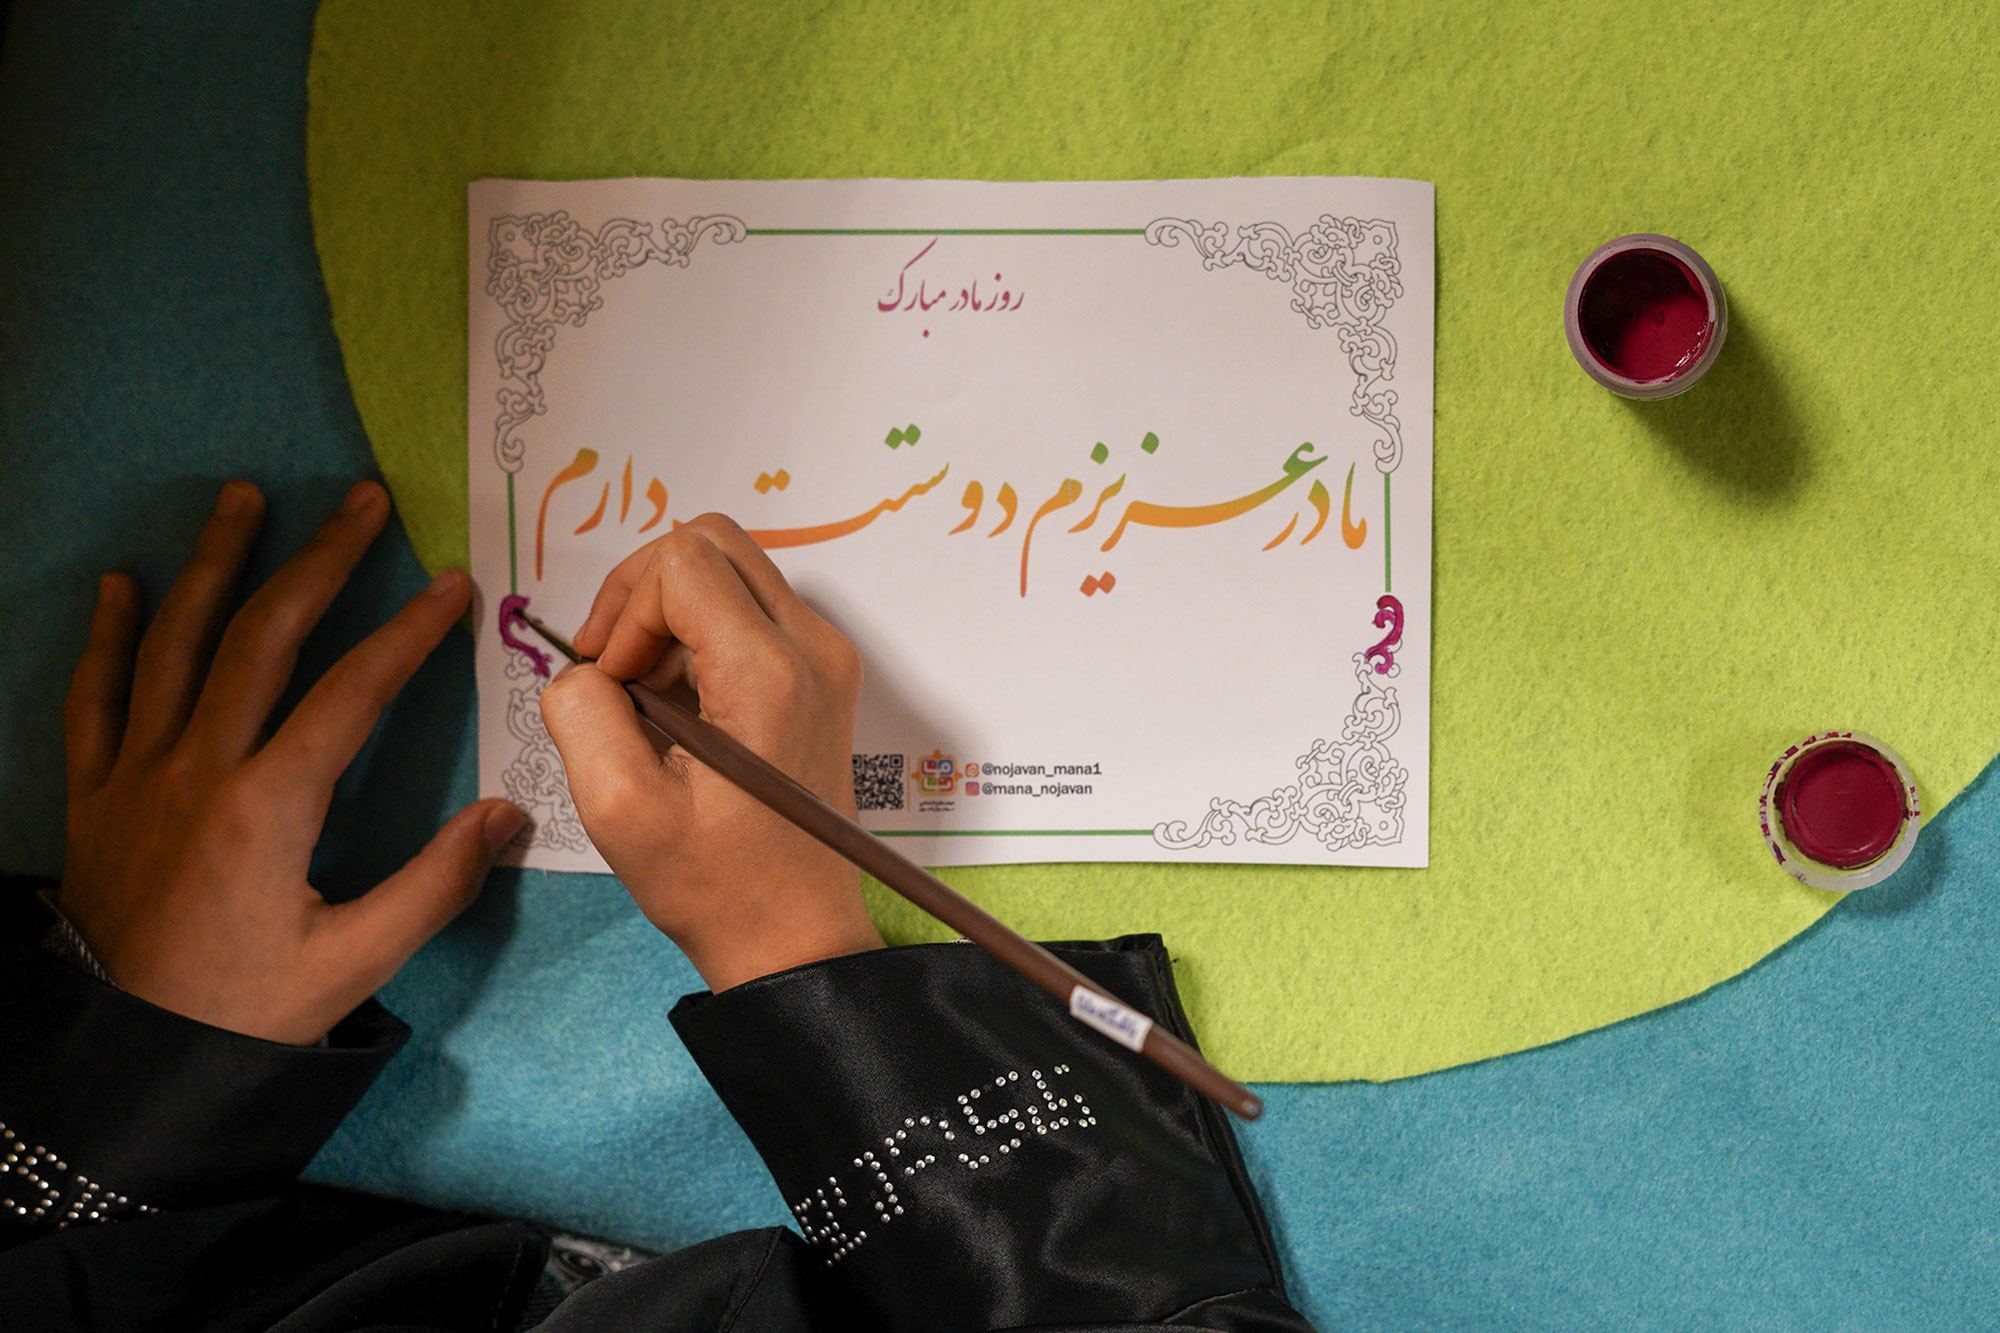 روز مادر مبارک
مادر عزیزم دوستت دارم
@nojavan_mana1
@mana_nojavan